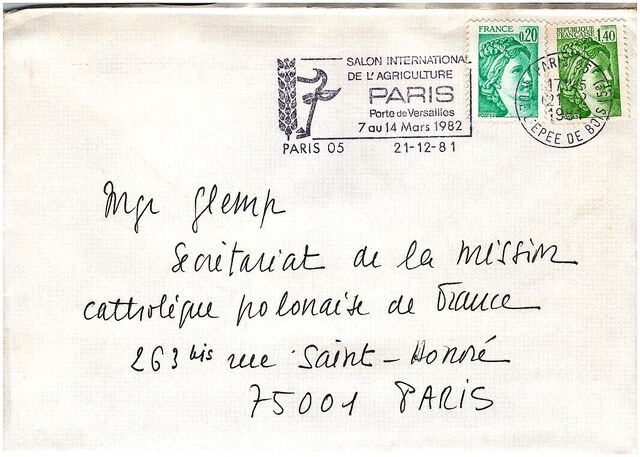 FRANCE 0,20
REPUBLIQUE FRANCAISE 1,40
SALON INTERNATIONAL
DE L'AGRICULTURE
PARIS
Porte de Versailles
7 au 14 Mars 1982
PARIS 05 21-12-81
PARIS
L'EPEE DE BOIS
Mgr Glemp
Secrétariat de la mission
catholique polonaise de France
263 bis rue Saint-Honoré
75001 PARIS